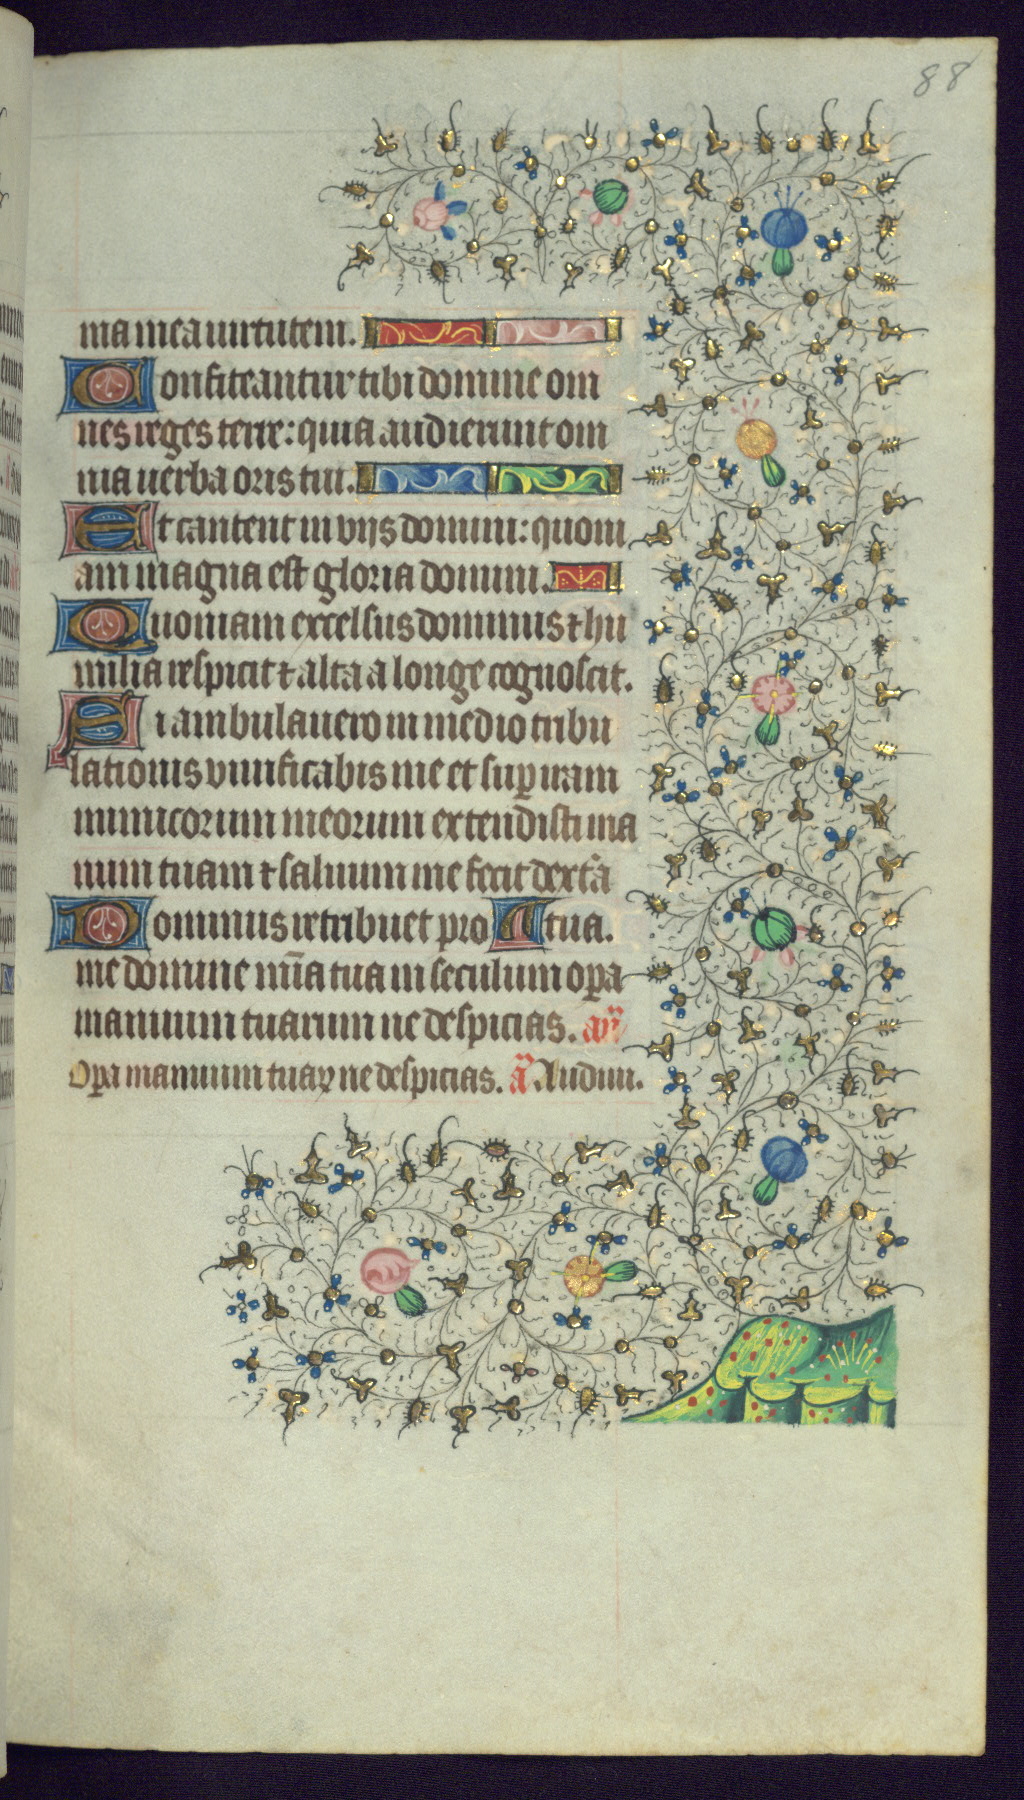 88
ma mea uirtutem.
Confiteantur tibi domine om
nes reges terre: quia audierunt om
nia uerba oris tui.
Et cantent in vijs domini: quoni
am magna est gloria domini.
Quoniam excelsus dominus ⁊ hu
milia respicit ⁊ alta a longe cognoscit.
Si ambulauero in medio tribu
lationis viuificabis me et suꝑ iram
inimicorum meorum extendisti ma
num tuam ⁊ saluum me fecit dext̾a
Dominus retribuet pro tua.
me domine mīa tua in seculum A oꝑa
manuum tuarum ne despicias. an̄
Oꝑa manuum tuaꝝ ne despicias. ā Audiui.